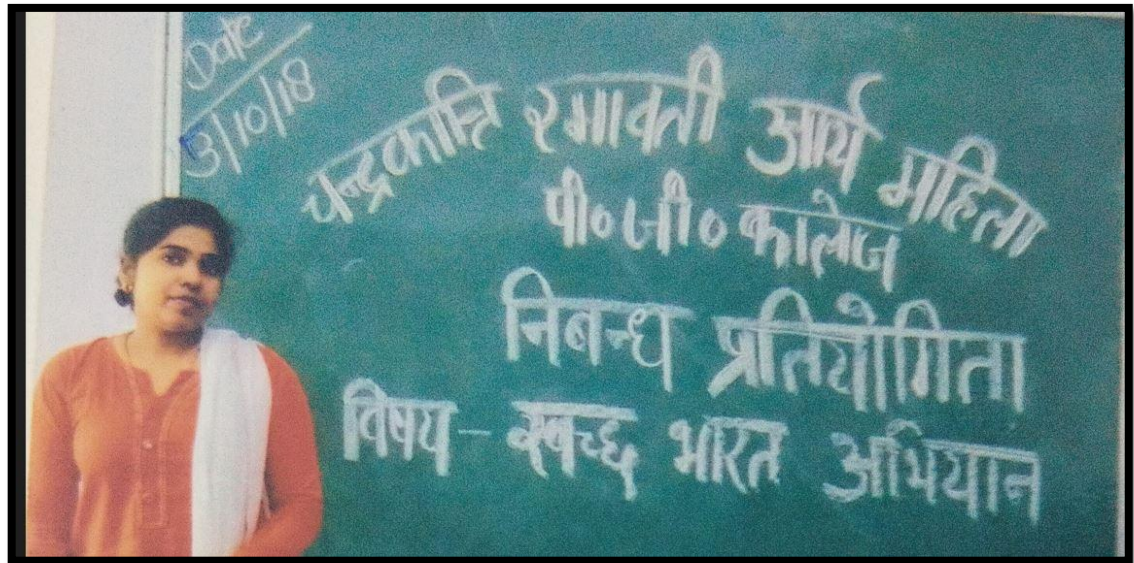 Date
3/10/18
चन्द्रकान्ति रमावती आर्य महिला
पी० जी० कालेज
निबन्ध प्रतियोगिता
विषय - स्वच्छ भारत अभियान